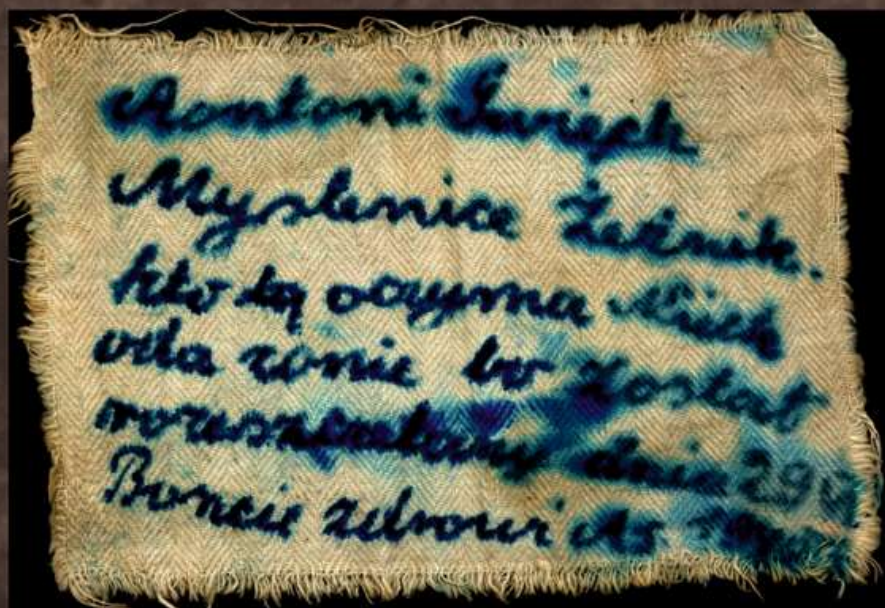 Antoni Święch
Myslenice Żeknik.
kto tą oczyma Niech
oda zonie bo zostat
rozuszczelany dnia 29
Boncie zdrowi As